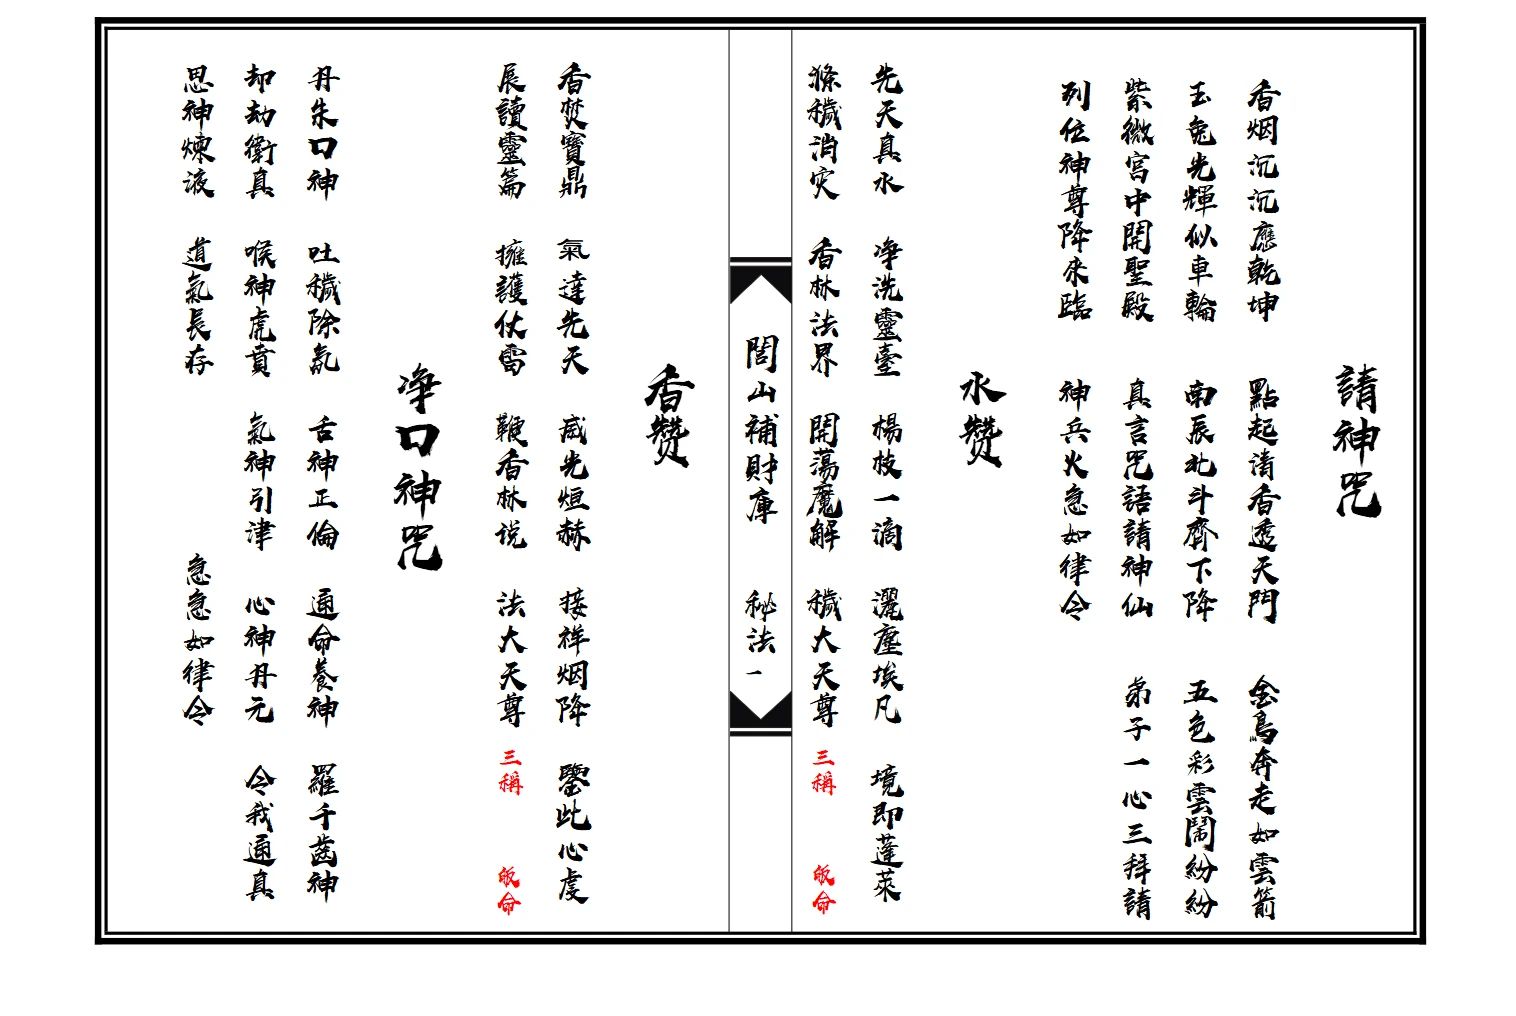 請神咒
香烟沉沉應乾坤 點起清香透天門 金鳥奔走如雲箭
玉兔光輝似車輪 南辰北斗齊下降 五色彩雲鬧紛紛
紫微宮中開聖殿 真言咒語請神仙 弟子一心三拜請
列位神尊降來臨 神兵火急如律令
水赞
先天真水 净洗靈臺 楊枝一滴 灑塵埃凡 境即蓬萊
滌穢消灾 香林法界 開蕩魔解 穢大天尊 三稱 皈命
閭山補財庫 秘法 一
香赞
香焚寶鼎 氣達先天 威光烜赫 接祥烟降 鑒此心虔
展讀靈篇 擁護仗雷 鞭香林说 法大天尊 三稱 皈命
净口神咒
丹朱口神 吐穢除氣 舌神正倫 通命養神 羅千齒神
却劫衛真 喉神虎賁 氣神引津 心神丹元 令我通真
思神煉液 道氣長存 急急如律令